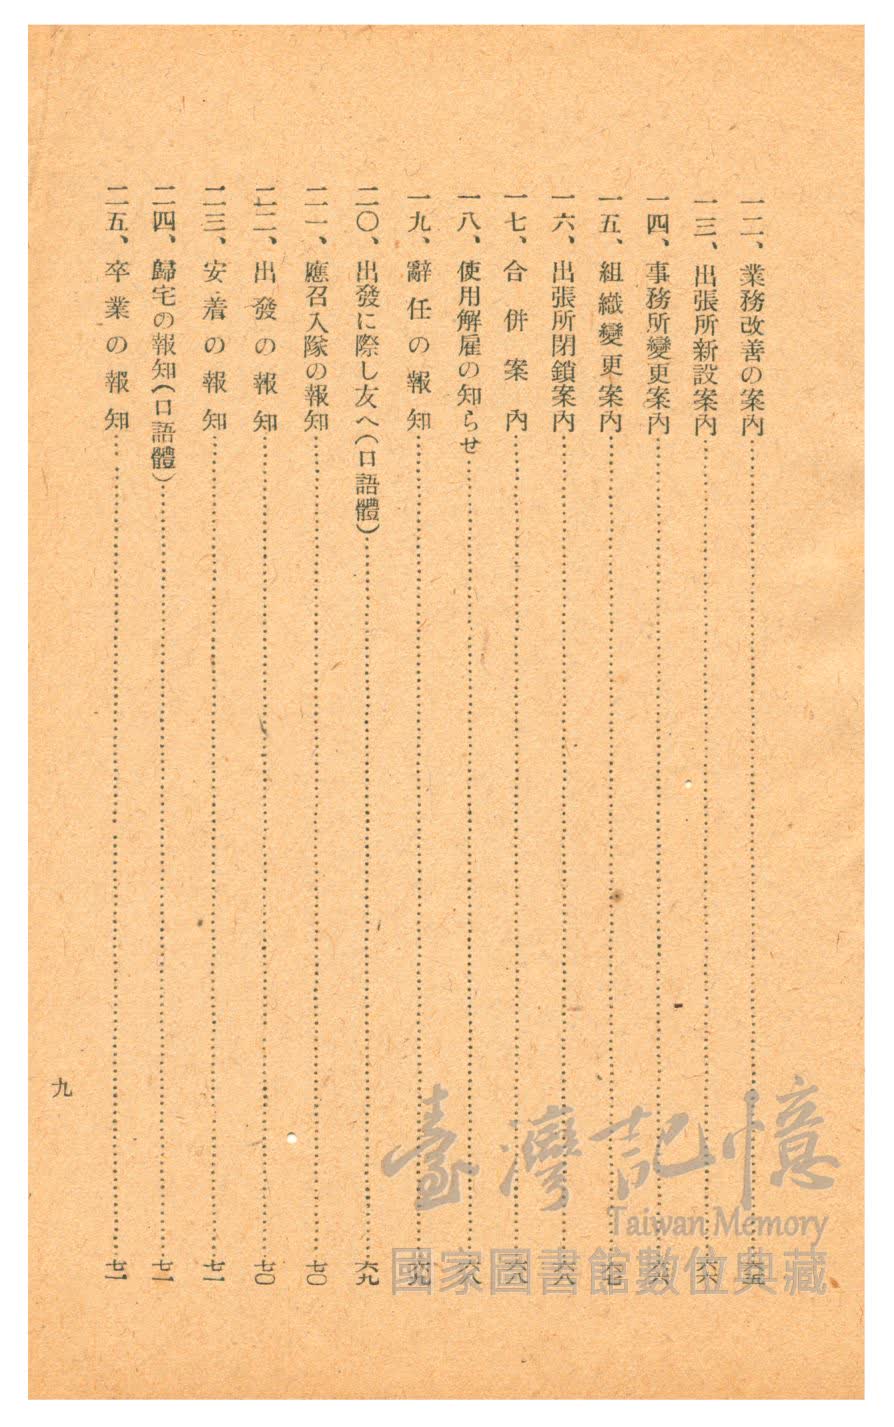 一二、業務改善の案內……六五
一三、出張所新設案內……六六
一四、事務所變更案內……六六
一五、組織變更案內……六七
一六、出張所閉鎖案內……六八
一七、合併案內……六八
一八、使用解雇の知らせ……六八
一九、辭任の報知……六九
二〇、出發に際し友へ(口語體)……六九
二一、應召入隊の報知……七〇
二二、出發の報知……七〇
二三、安着の報知……七一
二四、歸宅の報知(口語體)……七一
二五、卒業の報知……七一
九
臺灣記憶
Taiwan Memory
國家圖書館數位典藏